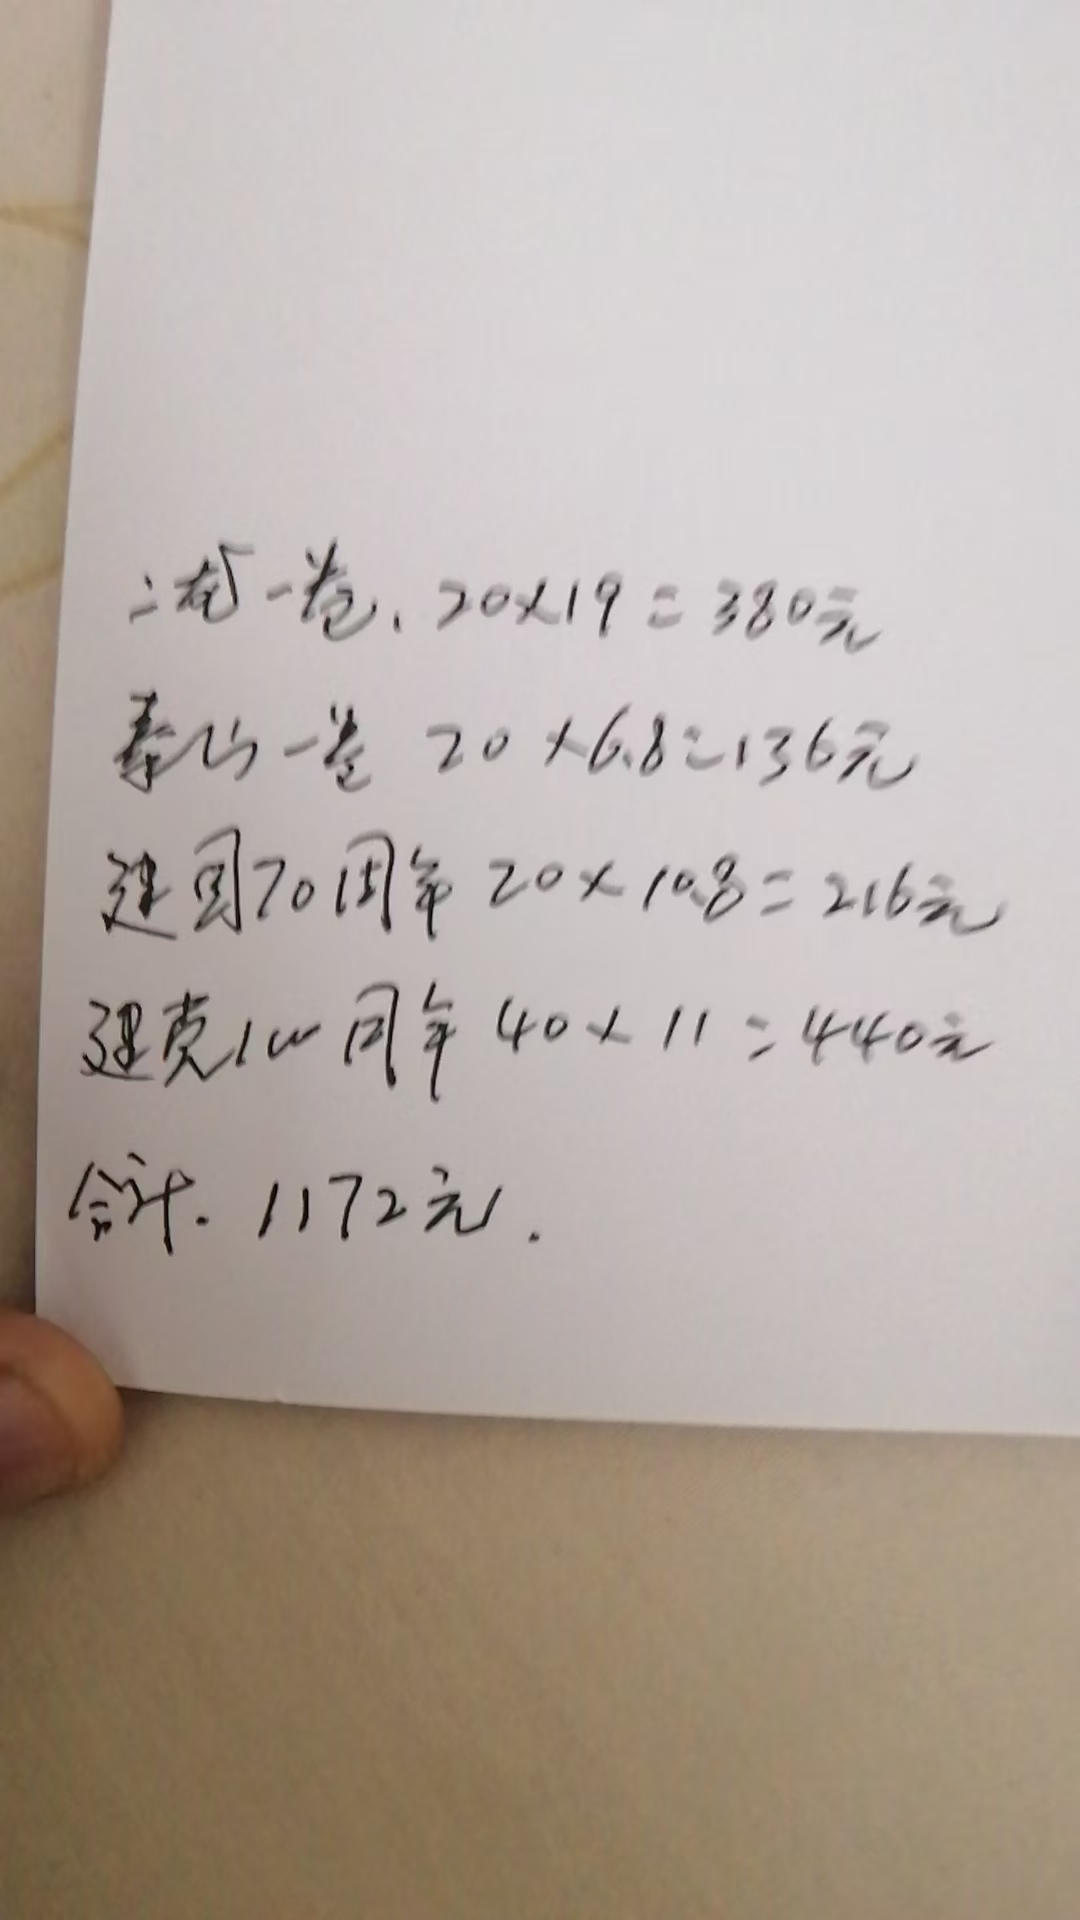 二虎一卷、20×19=380元
泰山一卷 20×6.8=136元
建国70周年 20×10.8=216元
建党100周年 40×11=440元
合计.1172元.